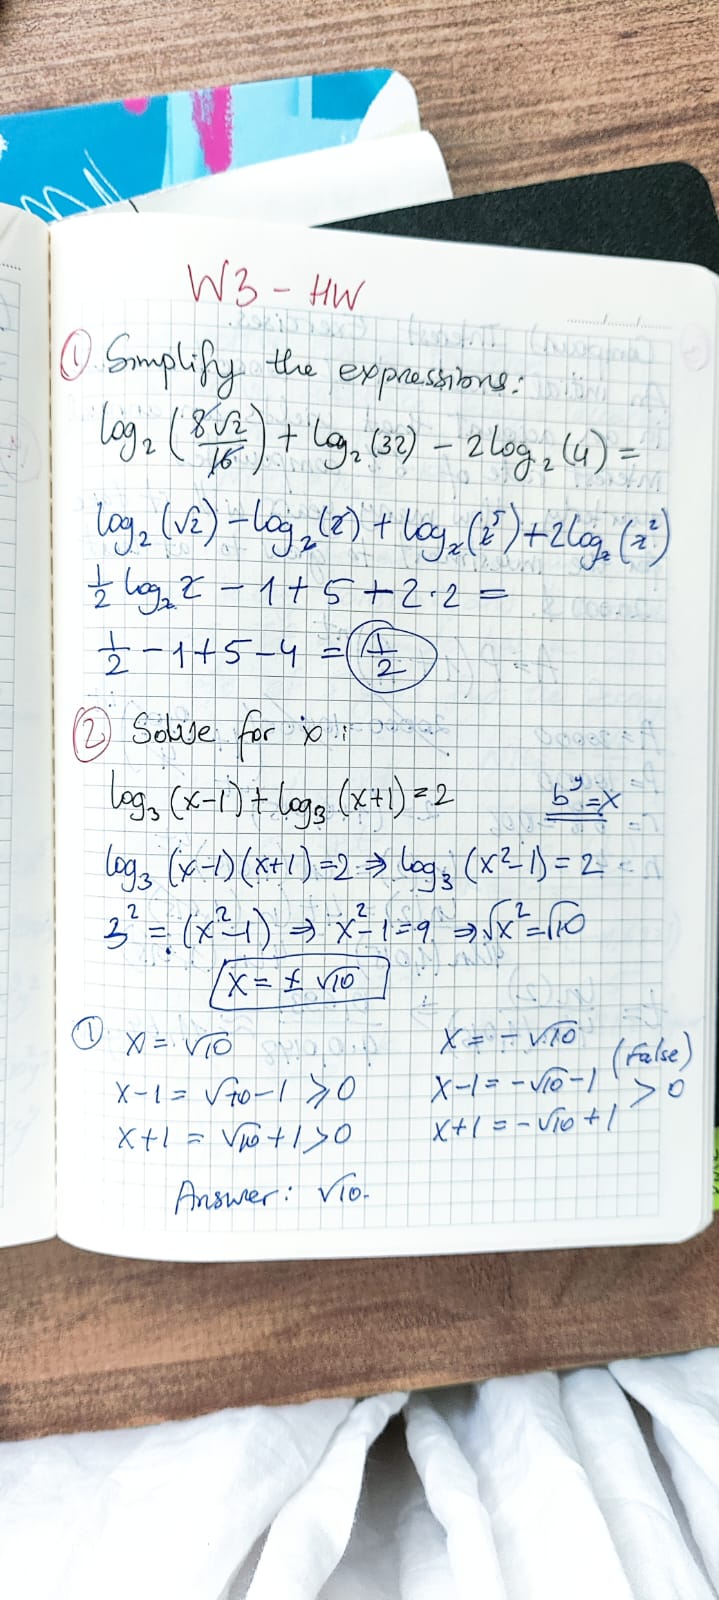 W3 - HW
① Simplify the expressions:
log₂ (8√2/16) + log₂ (32) - 2log₂ (4) =
log₂ (√2) - log₂ (2) + log₂ (2⁵) + 2log₂ (2²)
1/2 log₂ 2 - 1 + 5 + 2·2 =
1/2 - 1 + 5 - 4 = 1/2
② Solve for x:
log₃ (x-1) + log₃ (x+1) = 2
bʸ = x
log₃ (x-1)(x+1) = 2 ⇒ log₃ (x²-1) = 2
3² = (x²-1) ⇒ x²-1 = 9 ⇒ √x² = √10
x = ± √10
① x = √10
x-1 = √10 - 1 > 0
x+1 = √10 + 1 > 0
x = - √10
x-1 = -√10 - 1 (False) > 0
x+1 = -√10 + 1
Answer: √10.